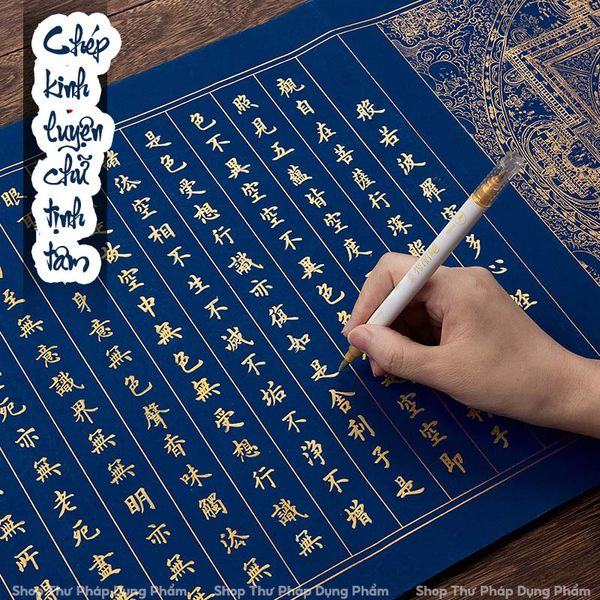 Chép
kinh
luyện
chữ
tịnh
tâm
般若波羅蜜多心經
觀自在菩薩行深般
照見五蘊皆空度
利子
色不異空空不異色色
空空即
是色受想行識亦復如是舍利子是
諸法空相不生不滅不垢不淨不增
故空中無色無受想行識無
眼耳
身意無色聲香味觸法無
至無意識界無無明亦無
死亦無老死盡
無所
Shop Thư Pháp Dụng Phẩm
Shop Thư Pháp Dụng Phẩm
Shop Thư Pháp Dụng Phẩm